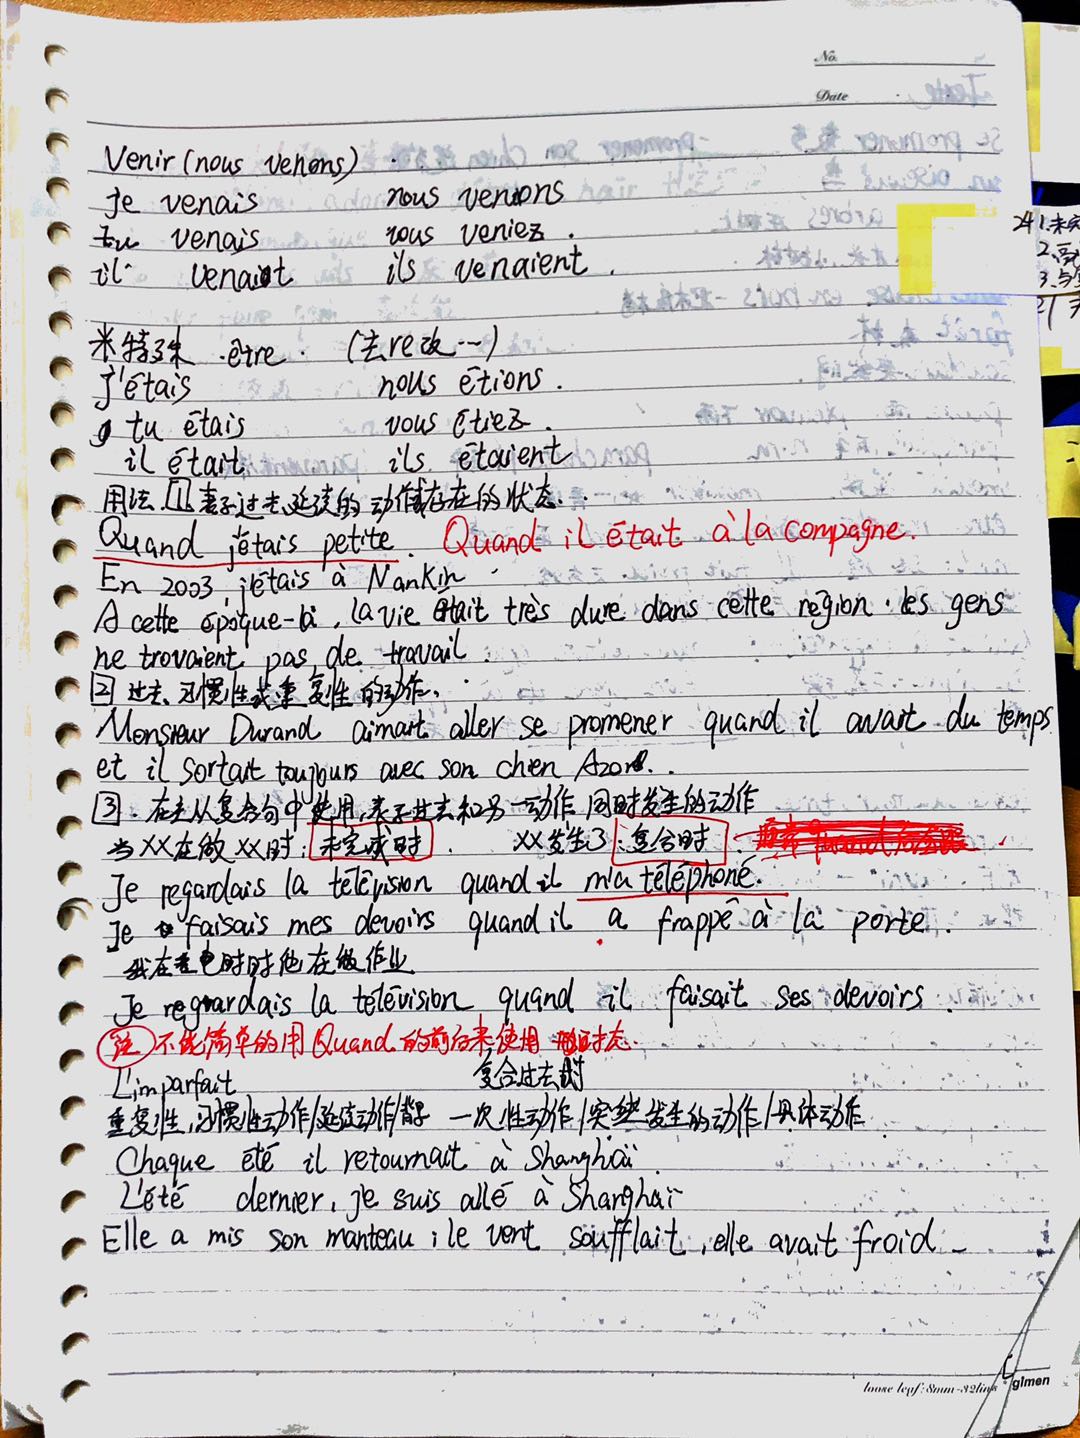 No.
Date
Venir (nous venons)
je venais nous venions
tu venais vous veniez.
il venait ils venaient.
米特殊 être. (去re改…)
j'étais nous étions.
tu étais vous étiez.
il était ils étaient
用法 1 表示过去延续的动作或存在的状态.
Quand j'étais petite. Quand il était à la compagne.
En 2003, j'étais à Nankin
A cette époque-là, la vie était très dure dans cette région. les gens
ne trovaient pas de travail.
2 过去、习惯性或重复性的动作.
Monsieur Durand aimait aller se promener quand il avait du temps
et il sortait toujours avec son chen Azor...
3. 在主从复合句中使用,表示过去和另一动作同时发生的动作
当XX在做XX时: 未完成时. XX发生了: 复合时
Je regardais la télévision quand il m'a téléphoné.
Je faisais mes devoirs quand il a frappé à la porte.
我在看电时时他在做作业
Je regardais la télévision quand il faisait ses devoirs.
注 不能简单的用Quand的前后来使用 时态.
L'imparfait 复合过去时
重复性,习惯性动作/延续动作/背景 一次性动作/突然发生的动作/具体动作
Chaque été il retournait à Shanghaï
L'été dernier, je suis allé à Shanghaï
Elle a mis son manteau; le vent soufflait, elle avait froid
loose leaf: 8mm-32lines glmen
24 1.未完
2.
3.与